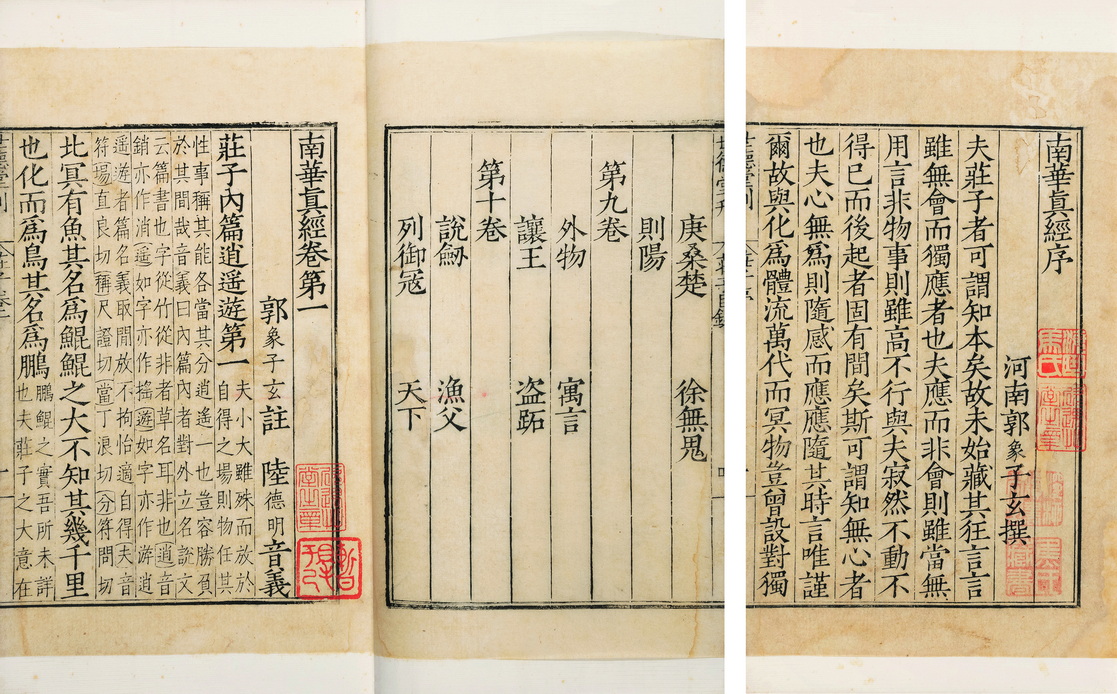 南華真經序
河南郭象子玄撰
夫莊子者可謂知本矣故未始藏其狂言言
雖無會而獨應者也夫應而非會則雖當無
用言非物事則雖高不行與夫寂然不動不
得已而後起者固有間矣斯可謂知無心者
也夫心無爲則隨感而應應隨其時言唯謹
爾故與化爲體流萬代而冥物豈曾設對獨
庚桑楚 徐無鬼
則陽
第九卷
外物 寓言
讓王 盗跖
第十卷
說劔 漁父
列御寇 天下
南華真經卷第一
郭象子玄註 陸德明音義
莊子內篇逍遥遊第一 夫小大雖殊而放於
自得之場則物任其
性事稱其能各當其分逍遥一也豈容勝負
於其間哉音義曰內篇內者對外立名說文
云篇書也字從竹從非者草名耳非也逍音
銷亦作消遥如字亦作搖遊如字亦作游逍
遥遊者篇名義取閒放不拘怡適自得夫音
符塲直良切稱尺證切當丁浪切分符問切
北冥有魚其名爲鯤鯤之大不知其幾千里
也化而爲鳥其名爲鵬 鵬鯤之實吾所未詳
也夫莊子之大意在